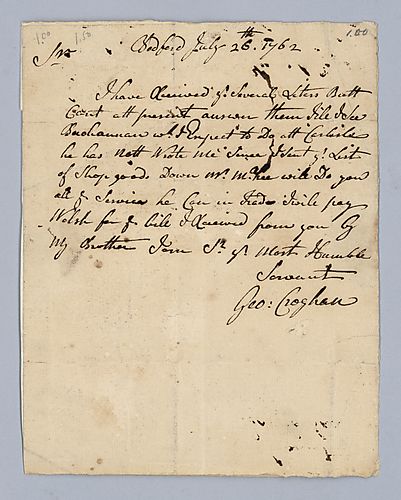 1.00 1.50 1.00
Bedford July 26th 1762
Sir
I have Received yr Several Leters Butt
Cant att present answer them Tile I See
Buchannan who I Expect to Do att Carlisle
he has Nott Wrote Me Since I Sent ye List
of Shop goods Down Mr McKee will Do you
all ye Service he Can in Trade I wile pay
Welsh for ye bile I Received from you by
My Brother I am Sr yr Most Humble
Servant
Geo: Croghan